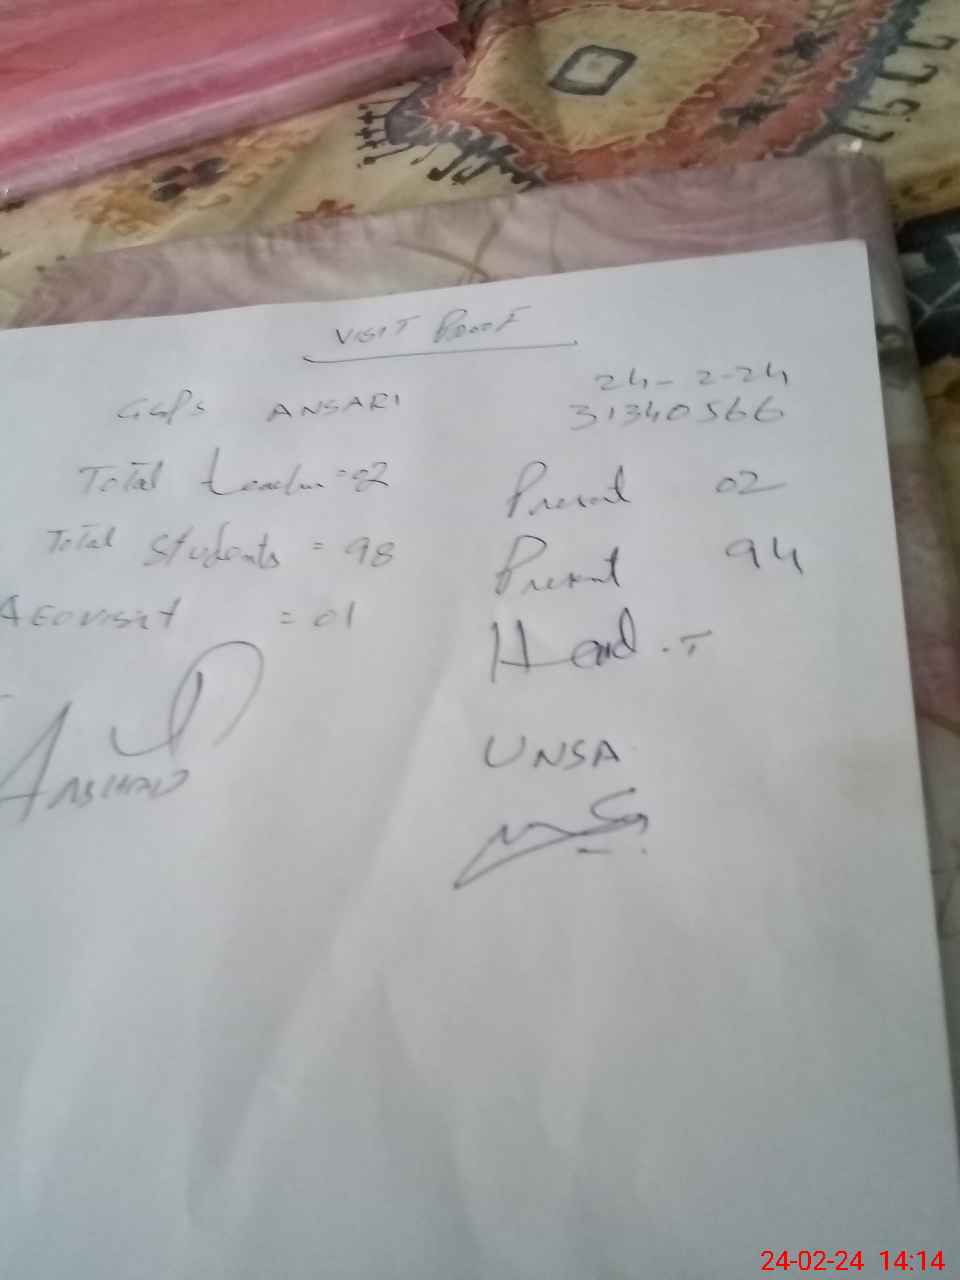 VISIT Proof
GGPS ANSARI
24-2-24
31340566
Total teacher = 02 Present 02
Total Students = 98 Present 94
AEO visit = 01
Head.T
ARSHAD
UNSA
24-02-24 14:14